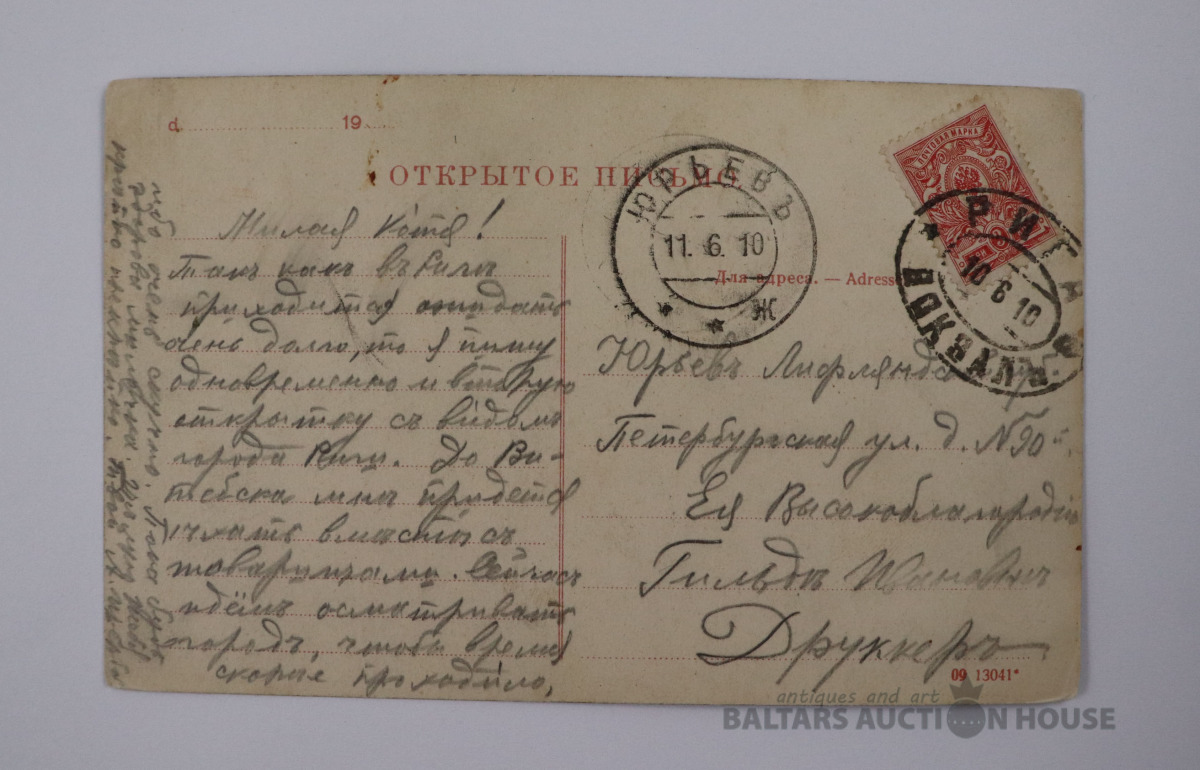 d. 19
ОТКРЫТОЕ ПИСЬМО
Для адреса. — Adresse
ПОЧТОВАЯ МАРКА
ЮРЬЕВЪ
11. 6. 10
Ж
РИГА
10 6 10
ВОКЗАЛЪ
Милая Котя!
Такъ какъ въ Ригѣ
приходится ожидать
очень долго, то я пишу
одновременно и вторую
открытку съ видомъ
города Риги. До Ви-
тебска мнѣ придется
ѣхать вмѣстѣ съ
товарищами. Сейчасъ
идёмъ осматривать
городъ, чтобы время
скорѣе проходило,
ибо очень скучно. Пока будь
здорова
крѣпко Твой
Юрьевъ Лифлянд
Петербургская ул. д. №90
Ея Высокоблагородію
Гильдѣ Ивановнѣ
Друккеръ
09 13041*
antiques and art
BALTARS AUCTION HOUSE